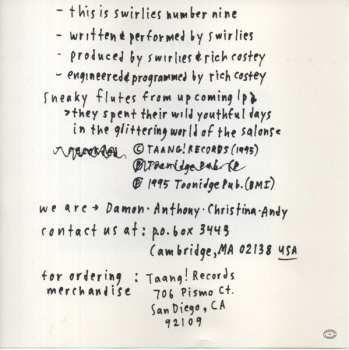 - this is swirlies number nine
- written & performed by swirlies
- produced by swirlies & rich costey
- engineered & programmed by rich costey
sneaky flutes from upcoming lp
>they spent their wild youthful days
in the glittering world of the salons<
© TAANG! RECORDS (1995)
Toonidge Pub.
℗ 1995 Toonidge Pub. (BMI)
we are → Damon · Anthony · Christina · Andy
contact us at : p.o. box 3443
Cambridge, MA 02138 USA
for ordering : Taang! Records
merchandise 706 Pismo Ct.
San Diego, CA
92109